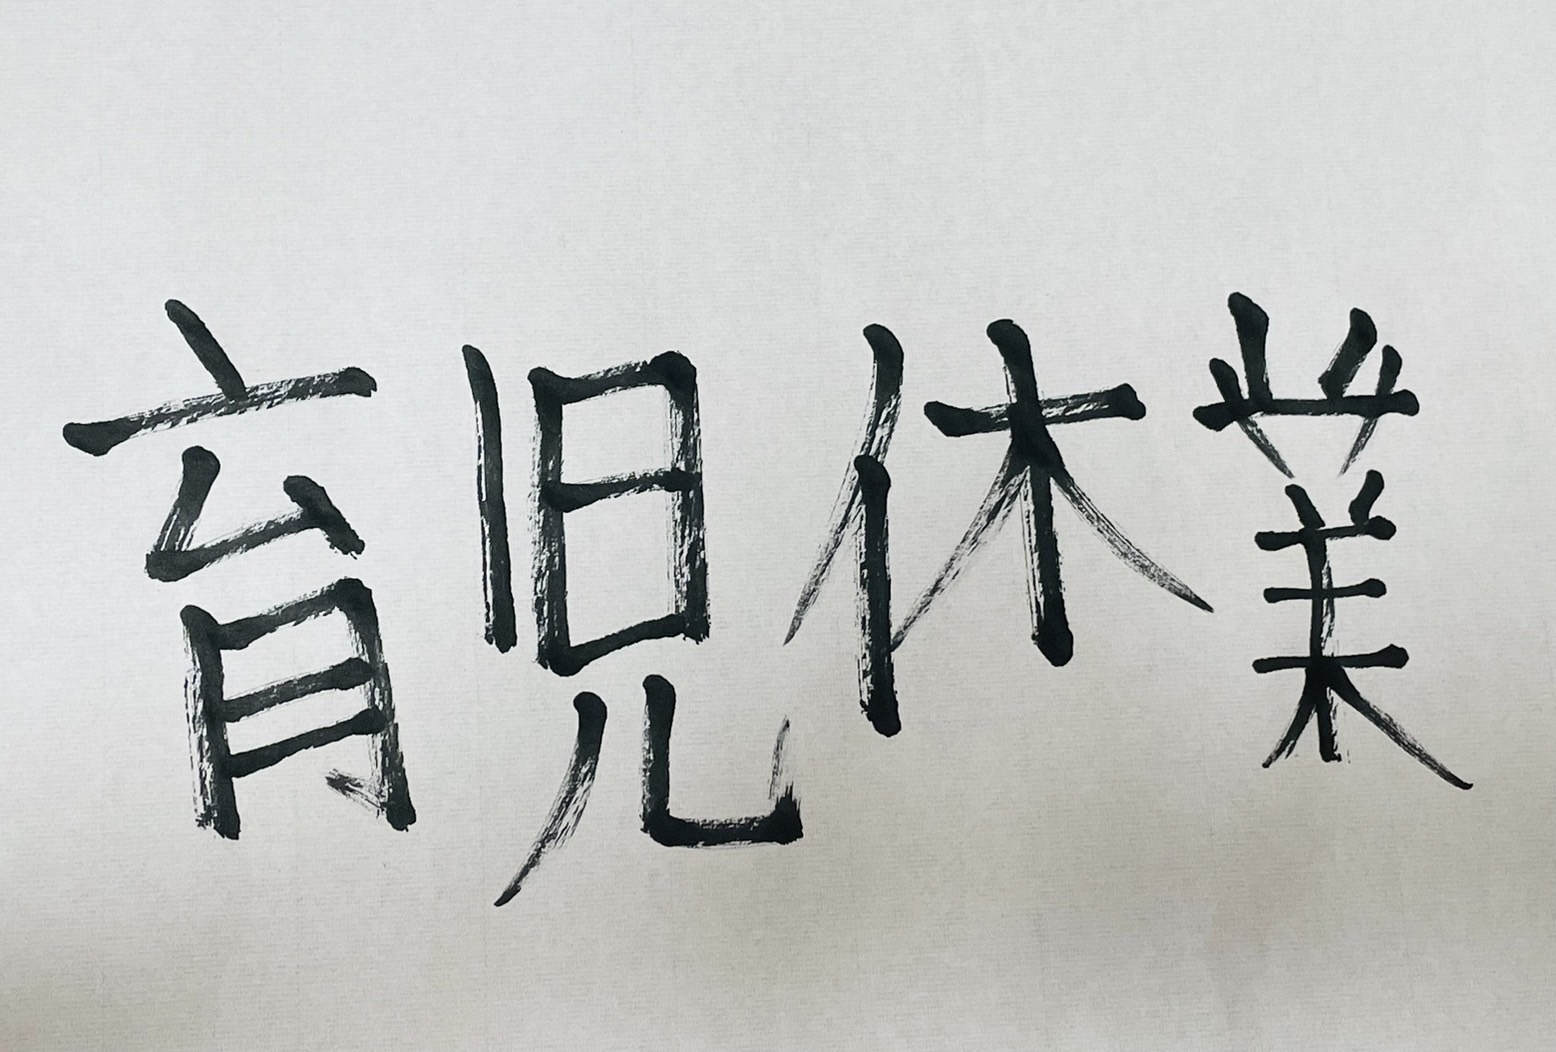 育児休業